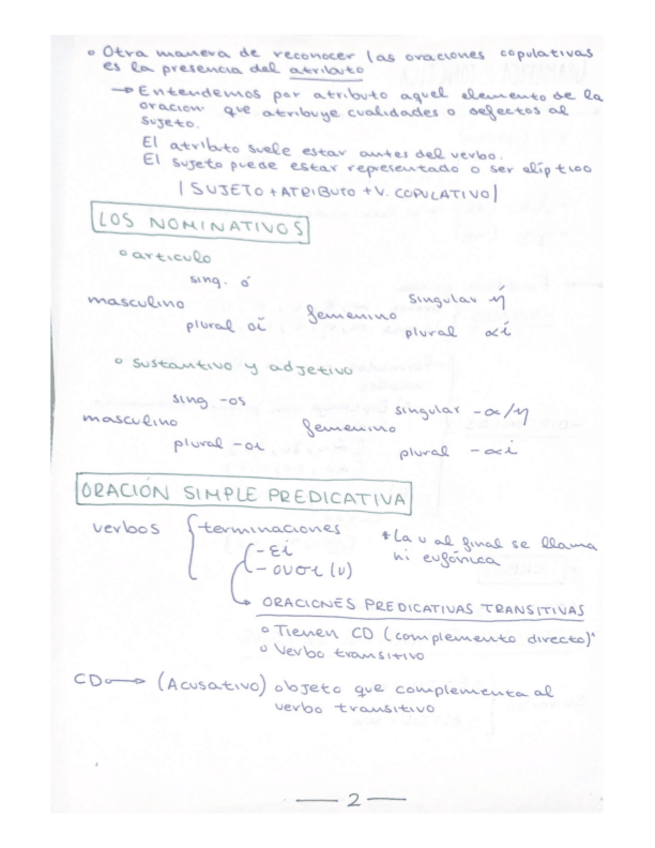 o Otra manera de reconocer las oraciones copulativas
es la presencia del atributo
→ Entendemos por atributo aquel elemento de la
oración que atribuye cualidades o defectos al
sujeto.
El atributo suele estar antes del verbo.
El sujeto puede estar representado o ser elíptico
| SUJETO + ATRIBUTO + V. COPULATIVO |
LOS NOMINATIVOS
o artículo
sing. ó
masculino
plural οἵ
femenino
singular ή
plural αί
o sustantivo y adjetivo
sing -os
masculino
plural -οι
femenino
singular -α/η
plural -αι
ORACIÓN SIMPLE PREDICATIVA
verbos { terminaciones
- εi
- ουσι (ν)
* La ν al final se llama
ni eufónica
→ ORACIONES PREDICATIVAS TRANSITIVAS
o Tienen CD (complemento directo)
o Verbo transitivo
CD → (Acusativo) objeto que complementa al
verbo transitivo
— 2 —